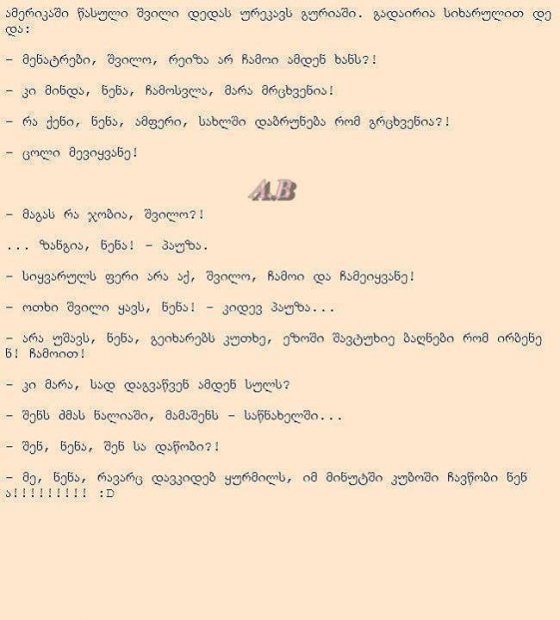 ამერიკაში წასული შვილი დედას ურეკავს გურიაში. გადაირია სიხარულით დე
და:
- მენატრები, შვილო, რეიზა არ ჩამოი ამდენ ხანს?!
- კი მინდა, ნენა, ჩამოსვლა, მარა მრცხვენია!
- რა ქენი, ნენა, ამფერი, სახლში დაბრუნება რომ გრცხვენია?!
- ცოლი მევიყვანე!
A.B
- მაგას რა ჯობია, შვილო?!
... ზანგია, ნენა! - პაუზა.
- სიყვარულს ფერი არა აქ, შვილო, ჩამოი და ჩამეიყვანე!
- ოთხი შვილი ყავს, ნენა! - კიდევ პაუზა...
- არა უშავს, ნენა, გეიხარებს კუთხე, ეზოში შავტუხიე ბაღნები რომ ირბენე
ნ! ჩამოით!
- კი მარა, სად დაგვაწვენ ამდენ სულს?
- შენს ძმას ნალიაში, მამაშენს - საწნახელში...
- შენ, ნენა, შენ სა დაწობი?!
- მე, ნენა, რავარც დავკიდებ ყურმილს, იმ მინუტში კუბოში ჩავწობი ნენ
ა!!!!!!!!! :D